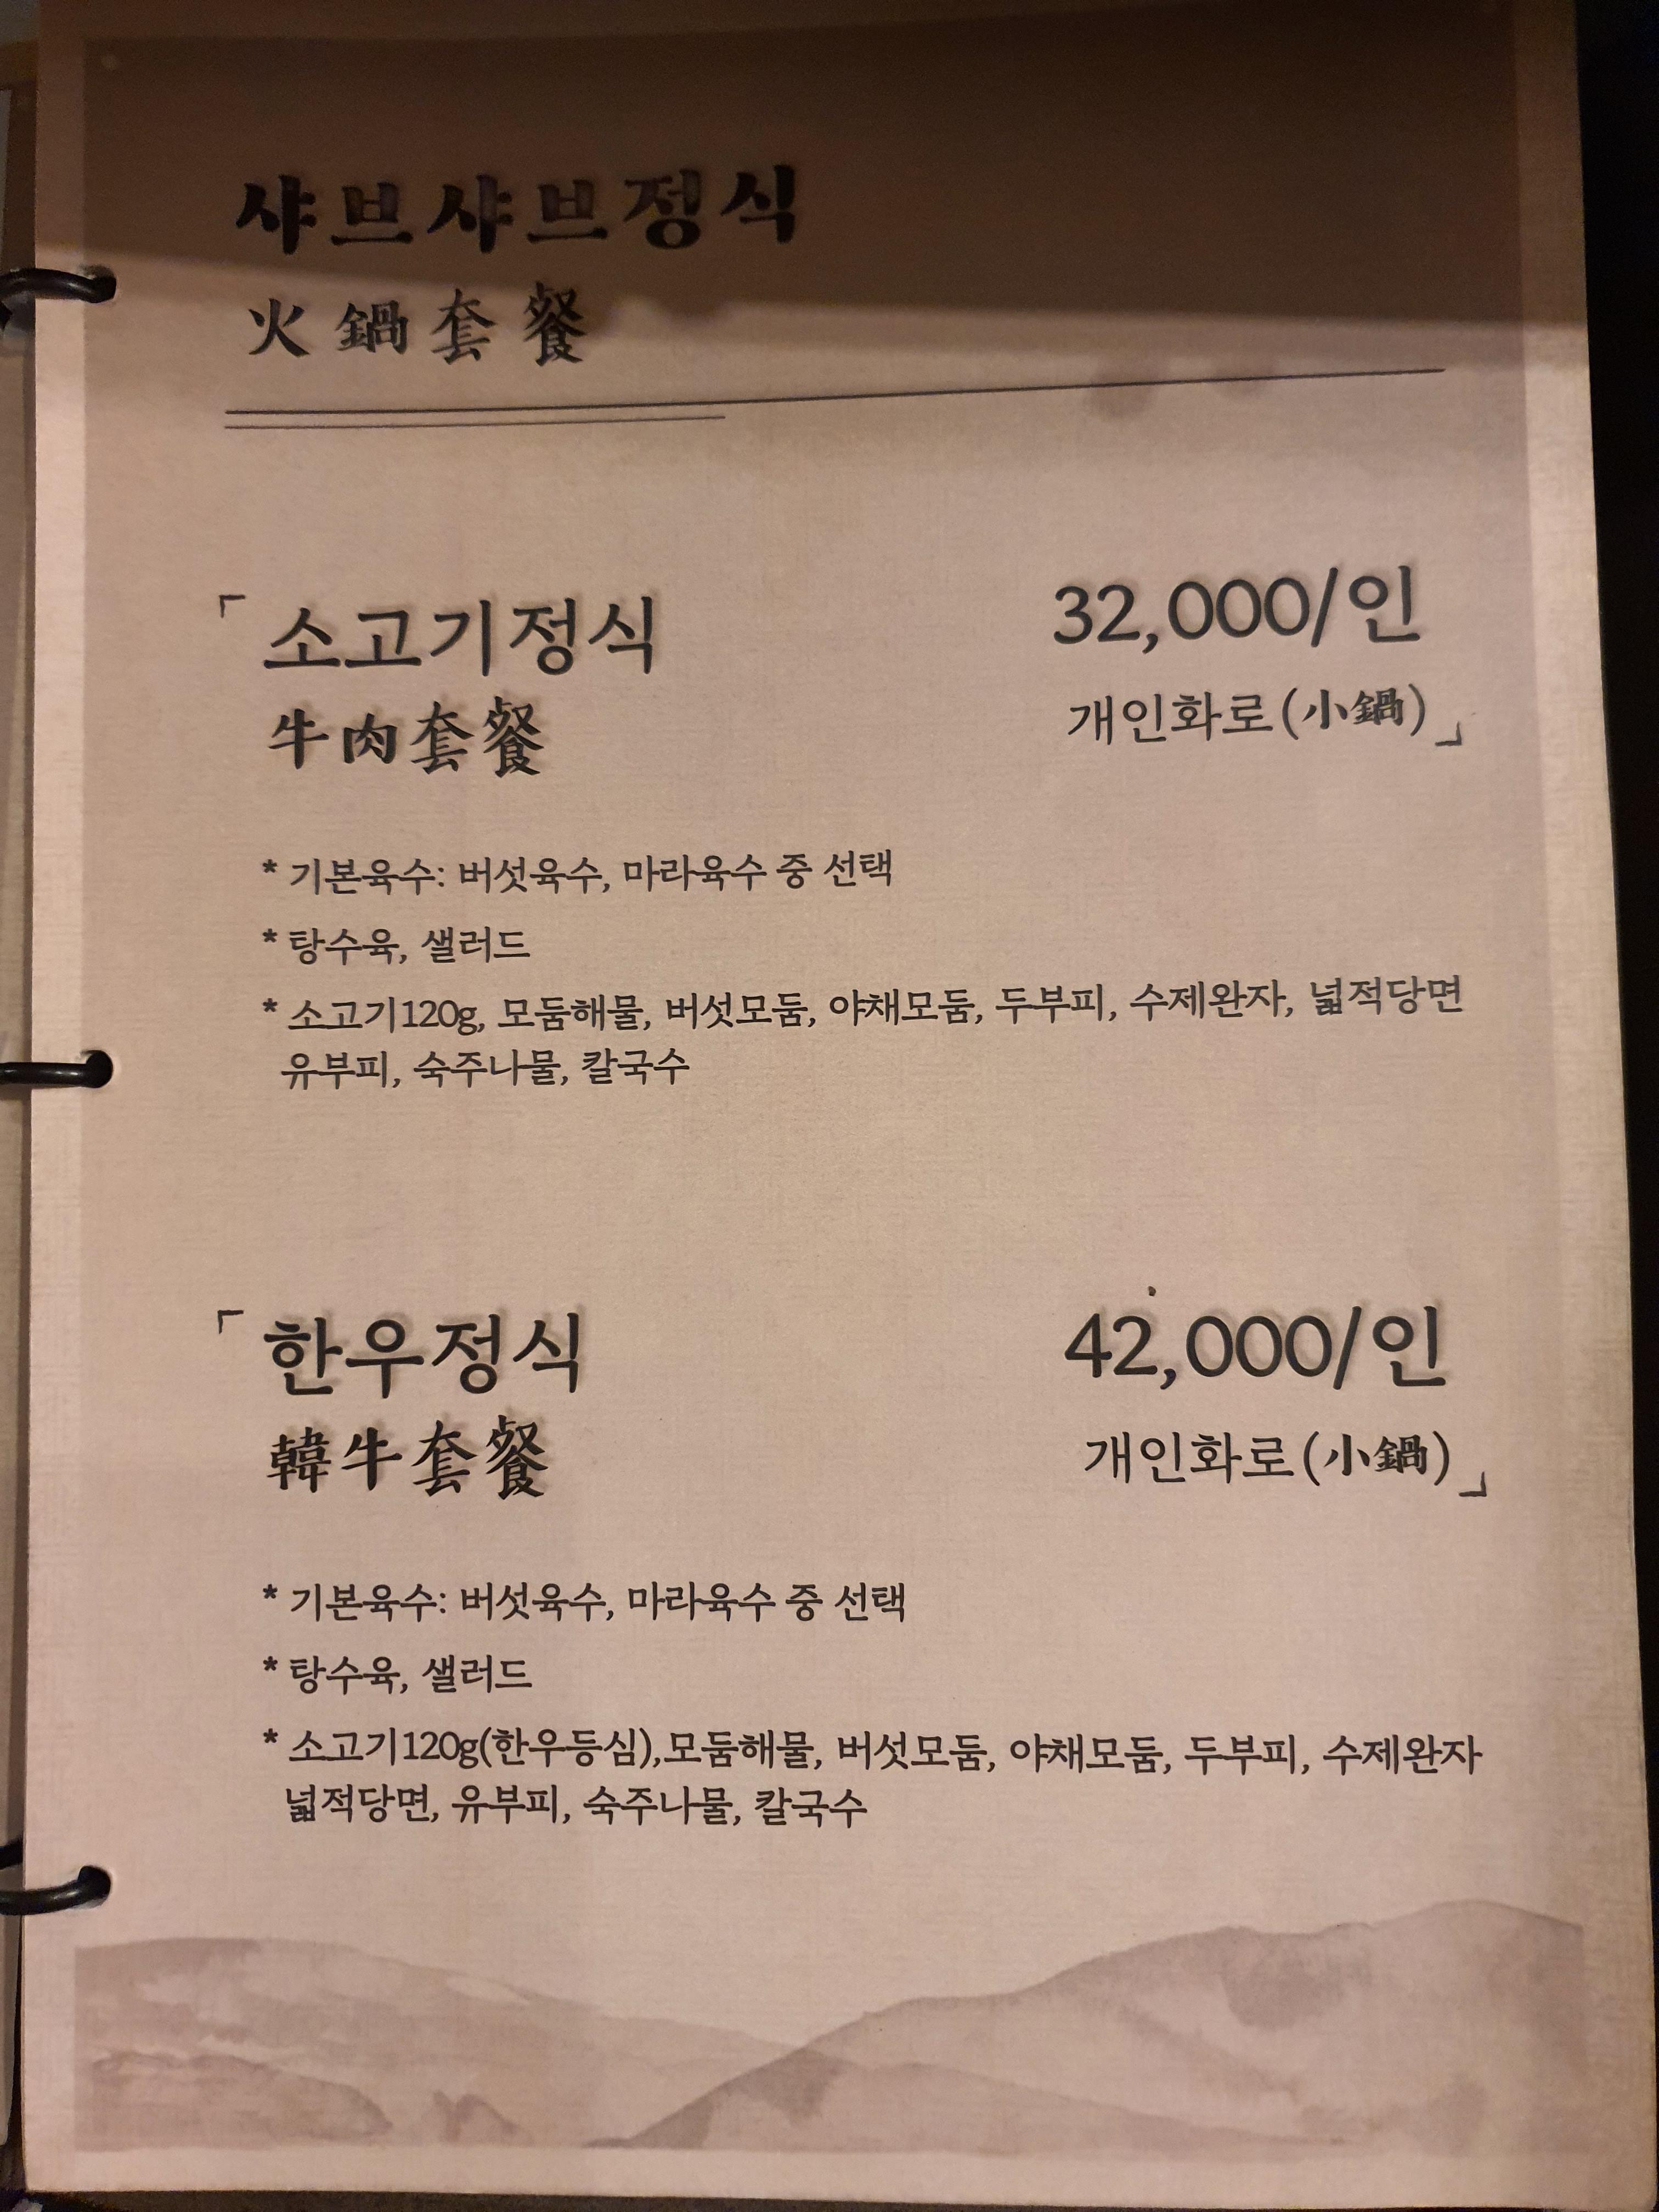 샤브샤브정식
火鍋套餐
「소고기정식 32,000/인
牛肉套餐 개인화로(小鍋)」
* 기본육수: 버섯육수, 마라육수 중 선택
* 탕수육, 샐러드
* 소고기120g, 모둠해물, 버섯모둠, 야채모둠, 두부피, 수제완자, 넓적당면
유부피, 숙주나물, 칼국수
「한우정식 42,000/인
韓牛套餐 개인화로(小鍋)」
* 기본육수: 버섯육수, 마라육수 중 선택
* 탕수육, 샐러드
* 소고기120g(한우등심),모둠해물, 버섯모둠, 야채모둠, 두부피, 수제완자
넓적당면, 유부피, 숙주나물, 칼국수